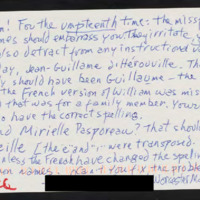 n! For the umpteenth time: the missp
mes should embarrass you. They irritate y
also detract from any instructional v
day, Jean-Guillame d'Hérouville. Th
ly should have been Guillaume - the
the French version of William was miss
n that was for a family member. Yours
o have the correct spelling.
nd Mirielle Pasporeau? That should
eille [the "e" and "i" were transposed.
nless the French have changed the spellin
en names. Can't you fix the proble
Worcester, Ma